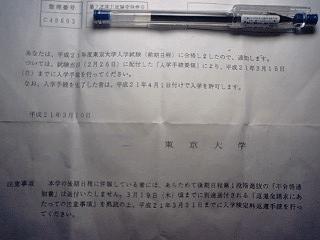 整理番号
C40603
あなたは、平成21年度東京大学入学試験（前期日程）に合格しましたので、通知します。
ついては、試験当日（2月26日）に配付した「入学手続要領」により、平成21年3月15日（
日）までに入学手続を行ってください。
なお、入学手続を完了した者は、平成21年4月1日付けで入学を許可します。
平成21年3月10日
東京大学
注意事項 本学の後期日程に併願している者には、あらためて後期日程第1段階選抜の「不合格通
知書」は送付いたしません。3月19日（木）頃までに別途送付される「返還金請求にあ
たっての注意事項」を熟読の上、平成21年3月31日までに入学検定料返還手続を行っ
てください。